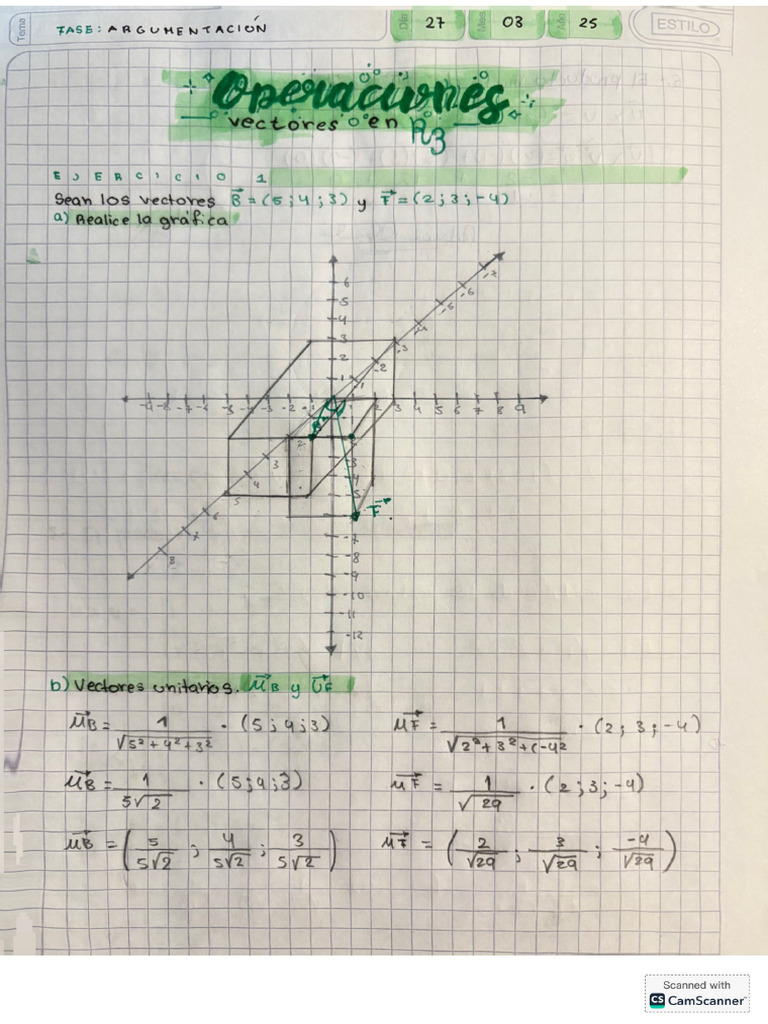 Tema
FASE: ARGUMENTACIÓN
Día 27 Mes 03 Año 25
ESTILO
Operaciones
vectores en R3
EJERCICIO 1
Sean los vectores B⃗ = (5;4;3) y F⃗ = (2;3;-4)
a) Realice la gráfica
6
5
4
3
2
1
-7
-6
-5
-4
-3
-2
2 3 4 5 6 7 8 9
2
3
4
5
6
7
8
F⃗
-7
-8
-9
-10
-11
-12
b) Vectores unitarios. μ⃗B y U⃗F
μ⃗B = 1/√(5²+4²+3²) · (5;4;3)
μ⃗F = 1/√(2²+3²+(-4²) · (2;3;-4)
μ⃗B = 1/(5√2) · (5;4;3)
μ⃗F = 1/√29 · (2;3;-4)
μ⃗B = (5/(5√2) ; 4/(5√2) ; 3/(5√2))
μ⃗F = (2/√29 ; 3/√29 ; -4/√29)
Scanned with
CS CamScanner